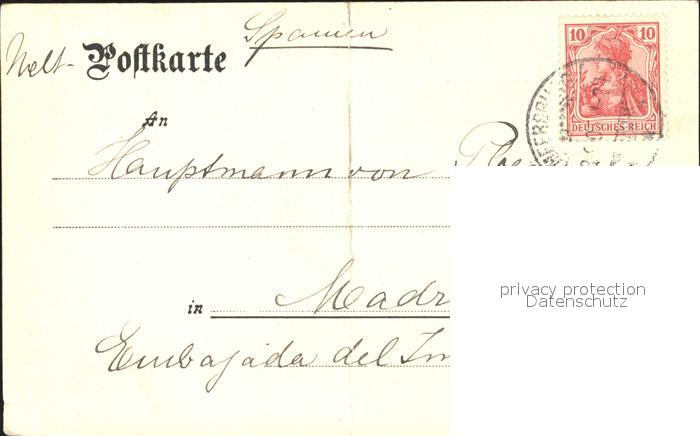 Spanien
Welt- Postkarte
10 10
DEUTSCHES REICH
An
Hauptmann von
in Madr
Embajada del Im
privacy protection
Datenschutz